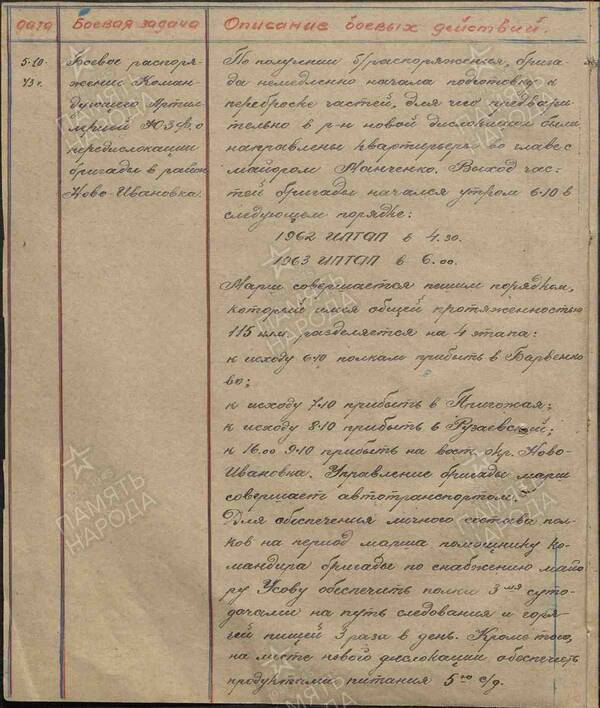 дата Боевая задача Описание боевых действий.
5.10 43 г.
Боевое распоря-
жение Коман-
дующего Артил-
лерией ЮЗФ, о
передислокации
бригады в район
Ново-Ивановка.
По получении б/распоряжения, брига
да немедленно начала подготовку к
переброске частей, для чего предвари
тельно в р-н новой дислокации были
направлены квартирьеры во главе с
майором Манченко. Выход час-
тей бригады начался утром 6.10 в
следующем порядке:
1962 ИПТАП в 4.30.
1963 ИПТАП в 6.00.
Марш совершается пешим порядком,
который имея общей протяженностью
115 км разделяется на 4 этапа:
к исходу 6.10 полкам прибыть в Барвенко
во;
к исходу 7.10 прибыть в Пригожая;
к исходу 8.10 прибыть в Рузаевский;
к 16.00 9.10 прибыть на вост. окр. Ново-
Ивановка. Управление бригады марш
совершает автотранспортом.
Для обеспеченья личного состава пол-
ков на период марша помощнику ко-
мандира бригады по снабжению майо
ру Усову обеспечить полки 3мя суто-
дачами на путь следования и горя-
чей пищей 3 раза в день. Кроме того,
на месте нового дислокации обеспечить
продуктами питания 5ю с/д.
ПАМЯТЬ
НАРОДА
ПАМЯТЬ
НАРОДА
ПАМЯТЬ
НАРОДА
ПАМЯТЬ
НАРОДА
ПАМЯТЬ
НАРОДА
ПАМЯТЬ
НАРОДА